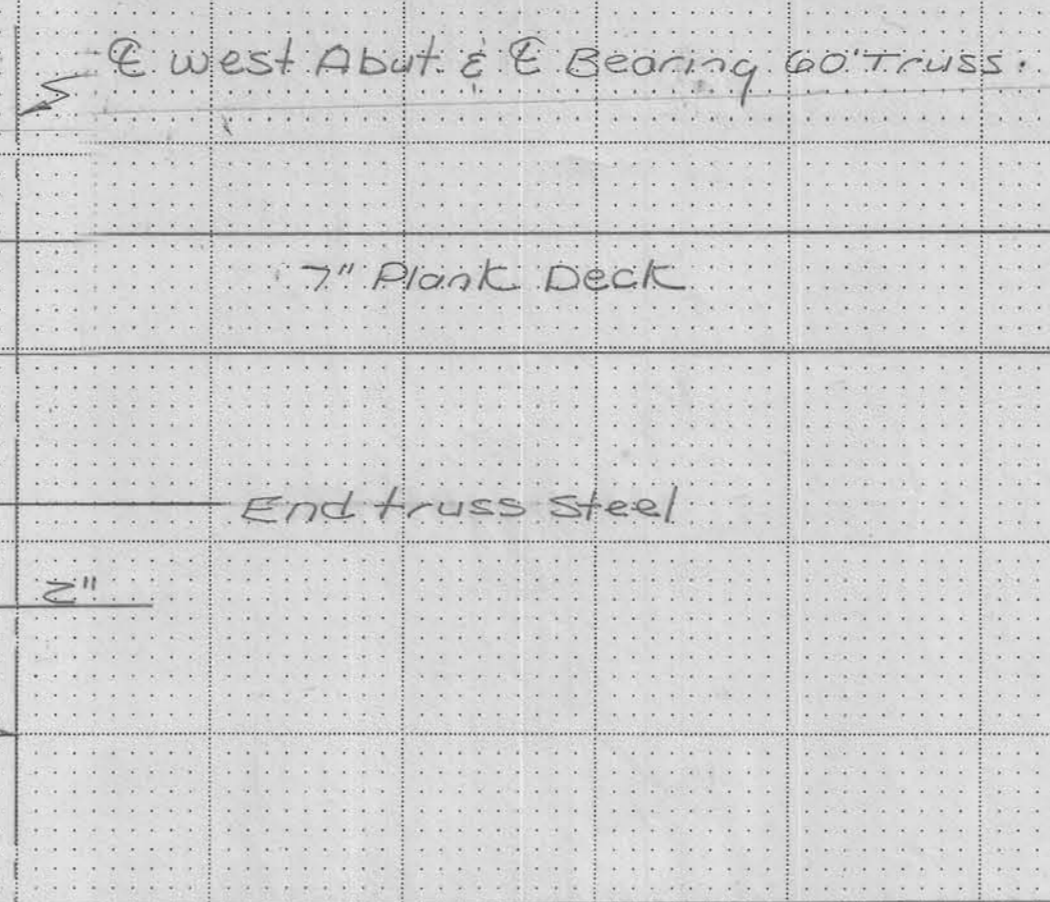 ℄ west Abut. & ℄ Bearing 60' Truss.
7" Plank Deck
End truss Steel
2"